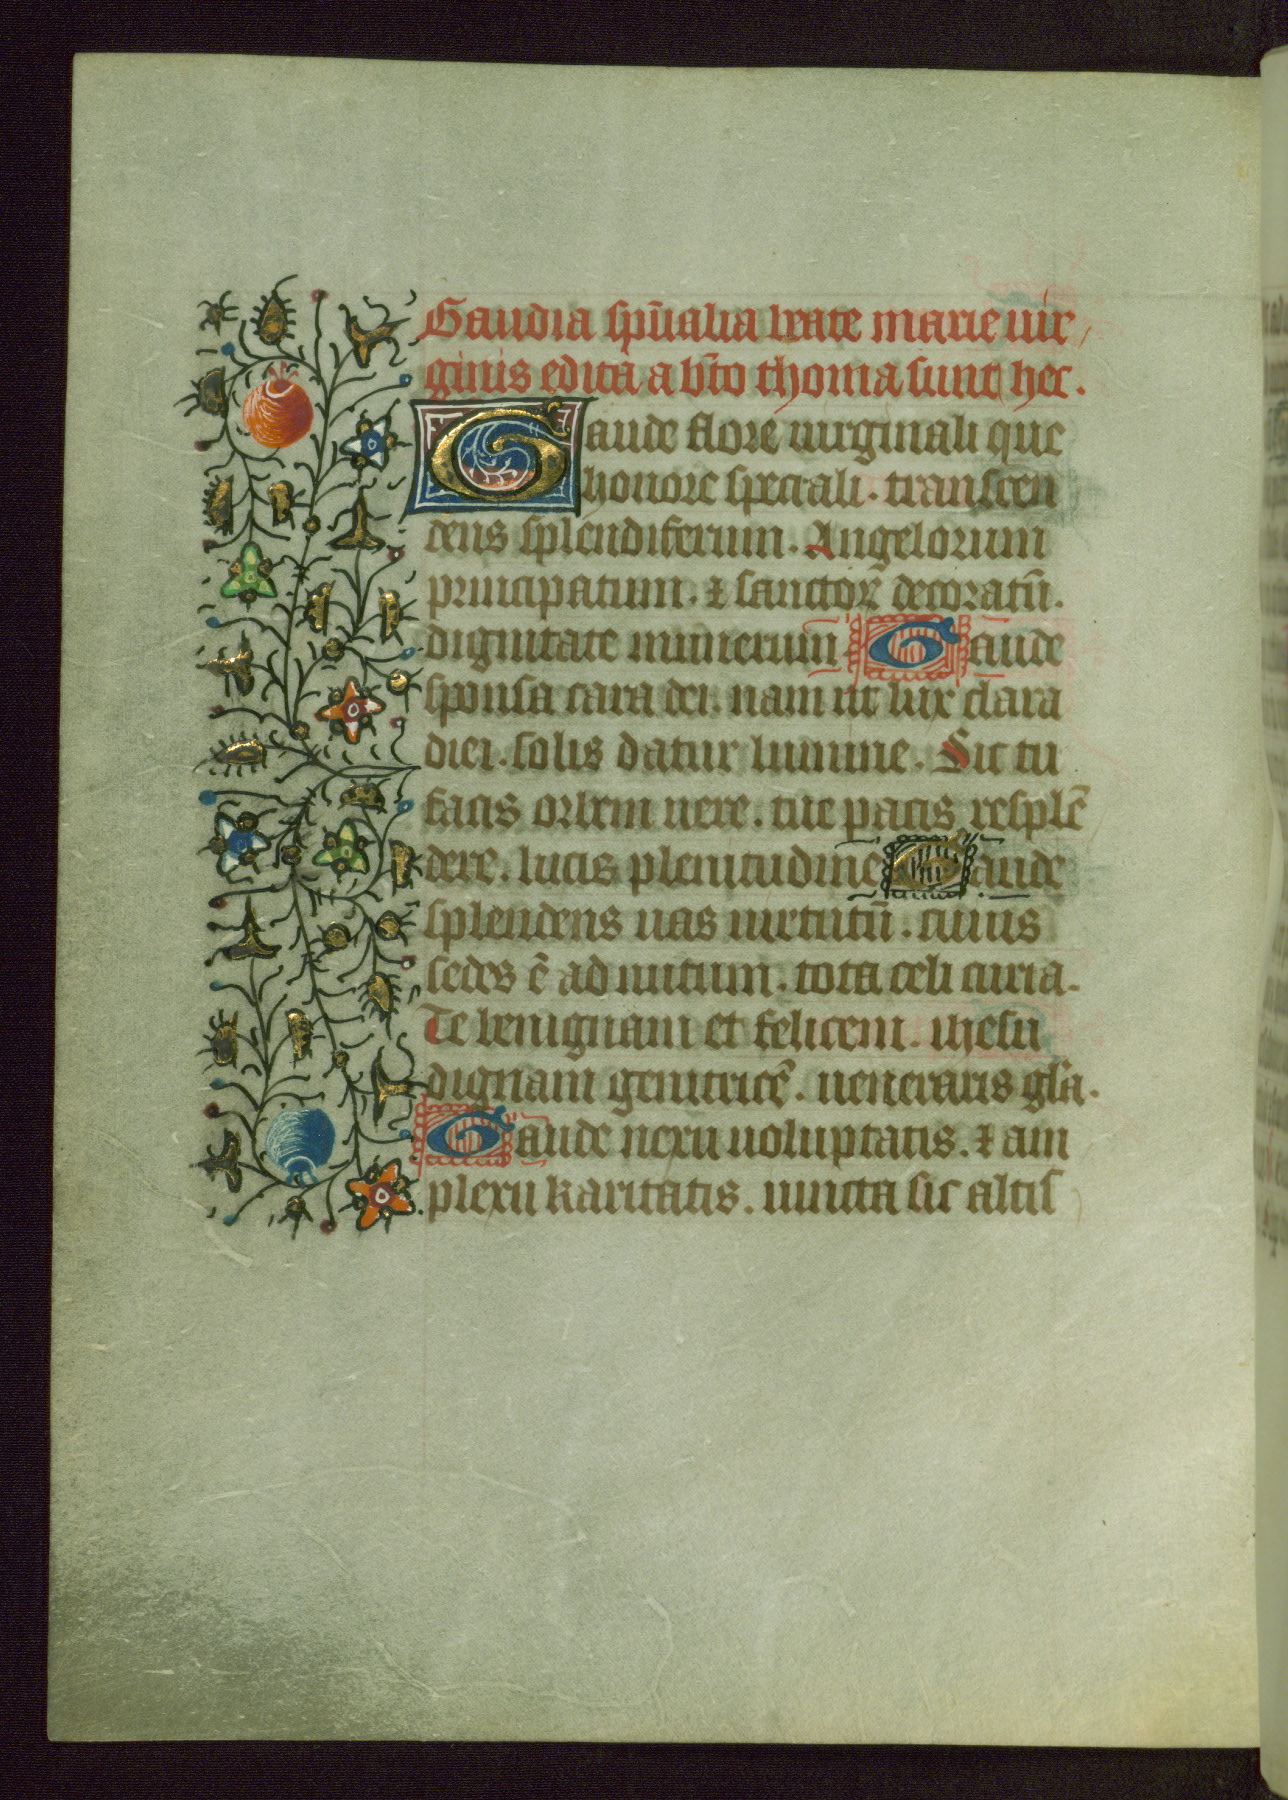 Gaudia spūalia beate marie uir
ginis edita a bt̄o thoma sunt hec.
Gaude flore uirginali que
honore speciali. transcen
dens splendiferum. Angelorum
principatum. ⁊ sanctoꝝ decoratū.
dignitate munerum Gaude
sponsa cara dei. nam ut lux clara
diei. solis datur lumine. Sic tu
facis orbem uere. tue pacis resplē
dere. lucis plenitudine Gaude
splendens uas uirtutū. cuius
sedes ē ad nutum. tota celi curia.
Te benignam et felicem. ihesu
dignam genitricē. ueneraris gl̄a.
Gaude nexu uoluptatis. ⁊ am
plexu karitatis. iuncta sic altis